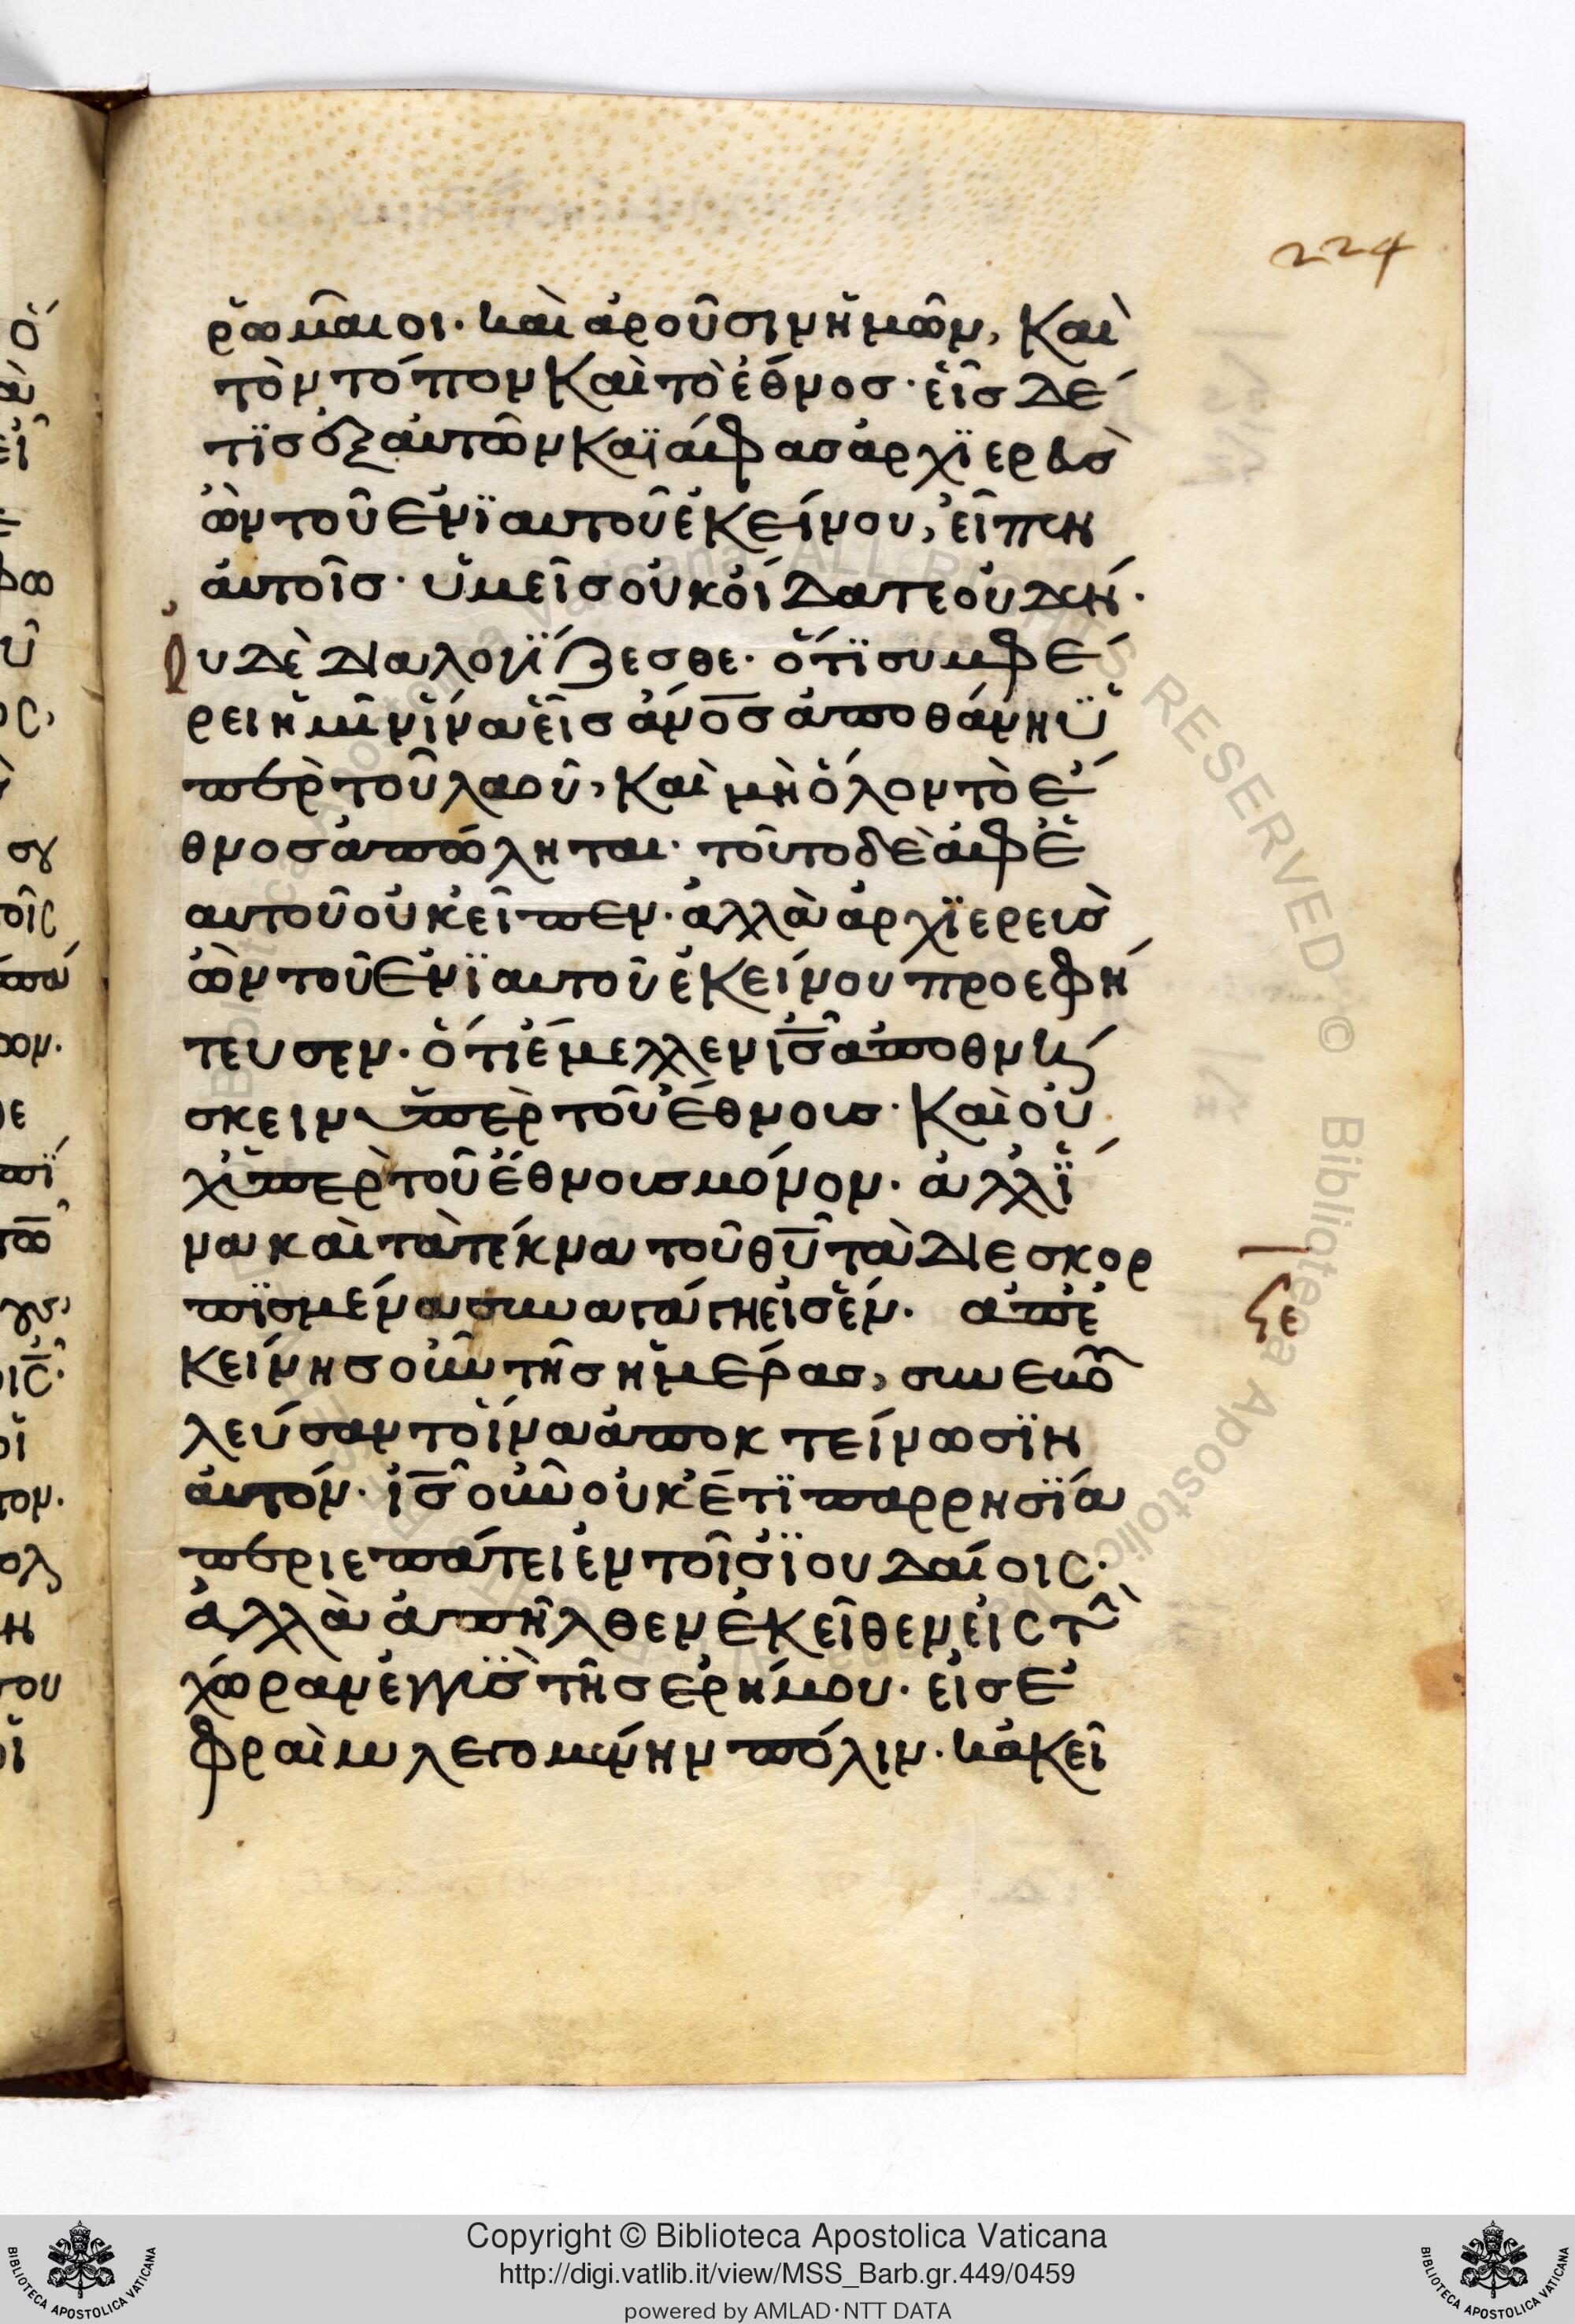 224
ῥωμαῖοι· καὶ ἀροῦσιν ἡμῶν, καὶ
τὸν τόπον καὶ τὸ ἔθνος· εἷς δέ
τϊς ἐξ αὐτῶν καϊάφας ἀρχϊερεὺς
ὢν τοῦ ἐνϊαυτοῦ ἐκείνου, εἶπεν
αὐτοῖς· ὑμεῖς οὐκ οἴδατε οὐδέν·
οὐδὲ διαλογΐζεσθε· ὅτϊ συμφέ
ρει ἡμῖν ἵνα εἷς ἄνο̅ς ἀποθάνη ὑ
πὲρ τοῦ λαοῦ, καὶ μὴ ὅλον τὸ ἔ
θνος ἀπόληται· τοῦτο δὲ ἀφ ἑ
αυτοῦ οὐκ εἶπεν· ἀλλὰ ἀρχϊερεὺς
ὢν τοῦ ἐνϊαυτοῦ ἐκείνου προεφή
τευσεν· ὅτι ἔμελλεν ι̅ς̅ ἀποθνή
σκειν ὑπὲρ τοῦ ἔθνους· καὶ οὐ
χ ὑπὲρ τοῦ ἔθνους μόνον· ἀλλ ΐ
να καὶ τὰ τέκνα τοῦ θ̅υ̅ τὰ διεσκορ
πϊσμένα συναγάγη εἰς ἕν· ἀπ ἐ
κείνης οὖν τῆς ἡμέρας, συνεβο
λεύσαντο ἵνα ἀποκτείνωσϊν
αὐτόν· ι̅ς̅ οὖν οὐκέτϊ παρρησΐα
περιεπάτει ἐν τοῖς ϊουδαίοις·
ἀλλὰ ἀπῆλθεν ἐκεῖθεν εἰς τὴν
χώραν ἐγγϋς τῆς ἐρήμου· εἰς ἐ
φραὶμ λεγομένην πόλιν· κἀκεῖ
ϟε
Copyright © Biblioteca Apostolica Vaticana
http://digi.vatlib.it/view/MSS_Barb.gr.449/0459
powered by AMLAD·NTT DATA